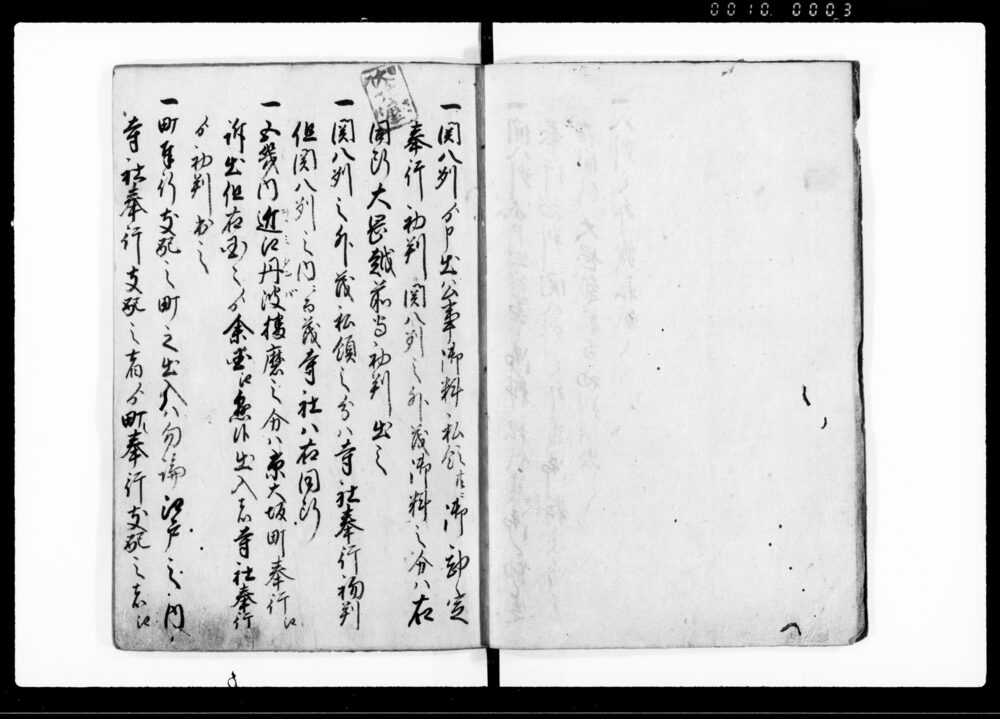 0010 0003
一関八州ゟ申出公事御料私領共御勘定
奉行初判関八州之外茂御料之分ハ右
同断大岡越前守初判出之
一関八州之外茂私領之分ハ寺社奉行初判
但関八州之内ニ而茂寺社ハ右同断
一五畿内近江丹波播磨之分ハ京大坂町奉行江
訴出但右国之ゟ余国江懸候出入者寺社奉行
ゟ初判出之
一町奉行支配之町之出入ハ勿論江戸之内
寺社奉行支配之者ゟ町奉行支配之者江